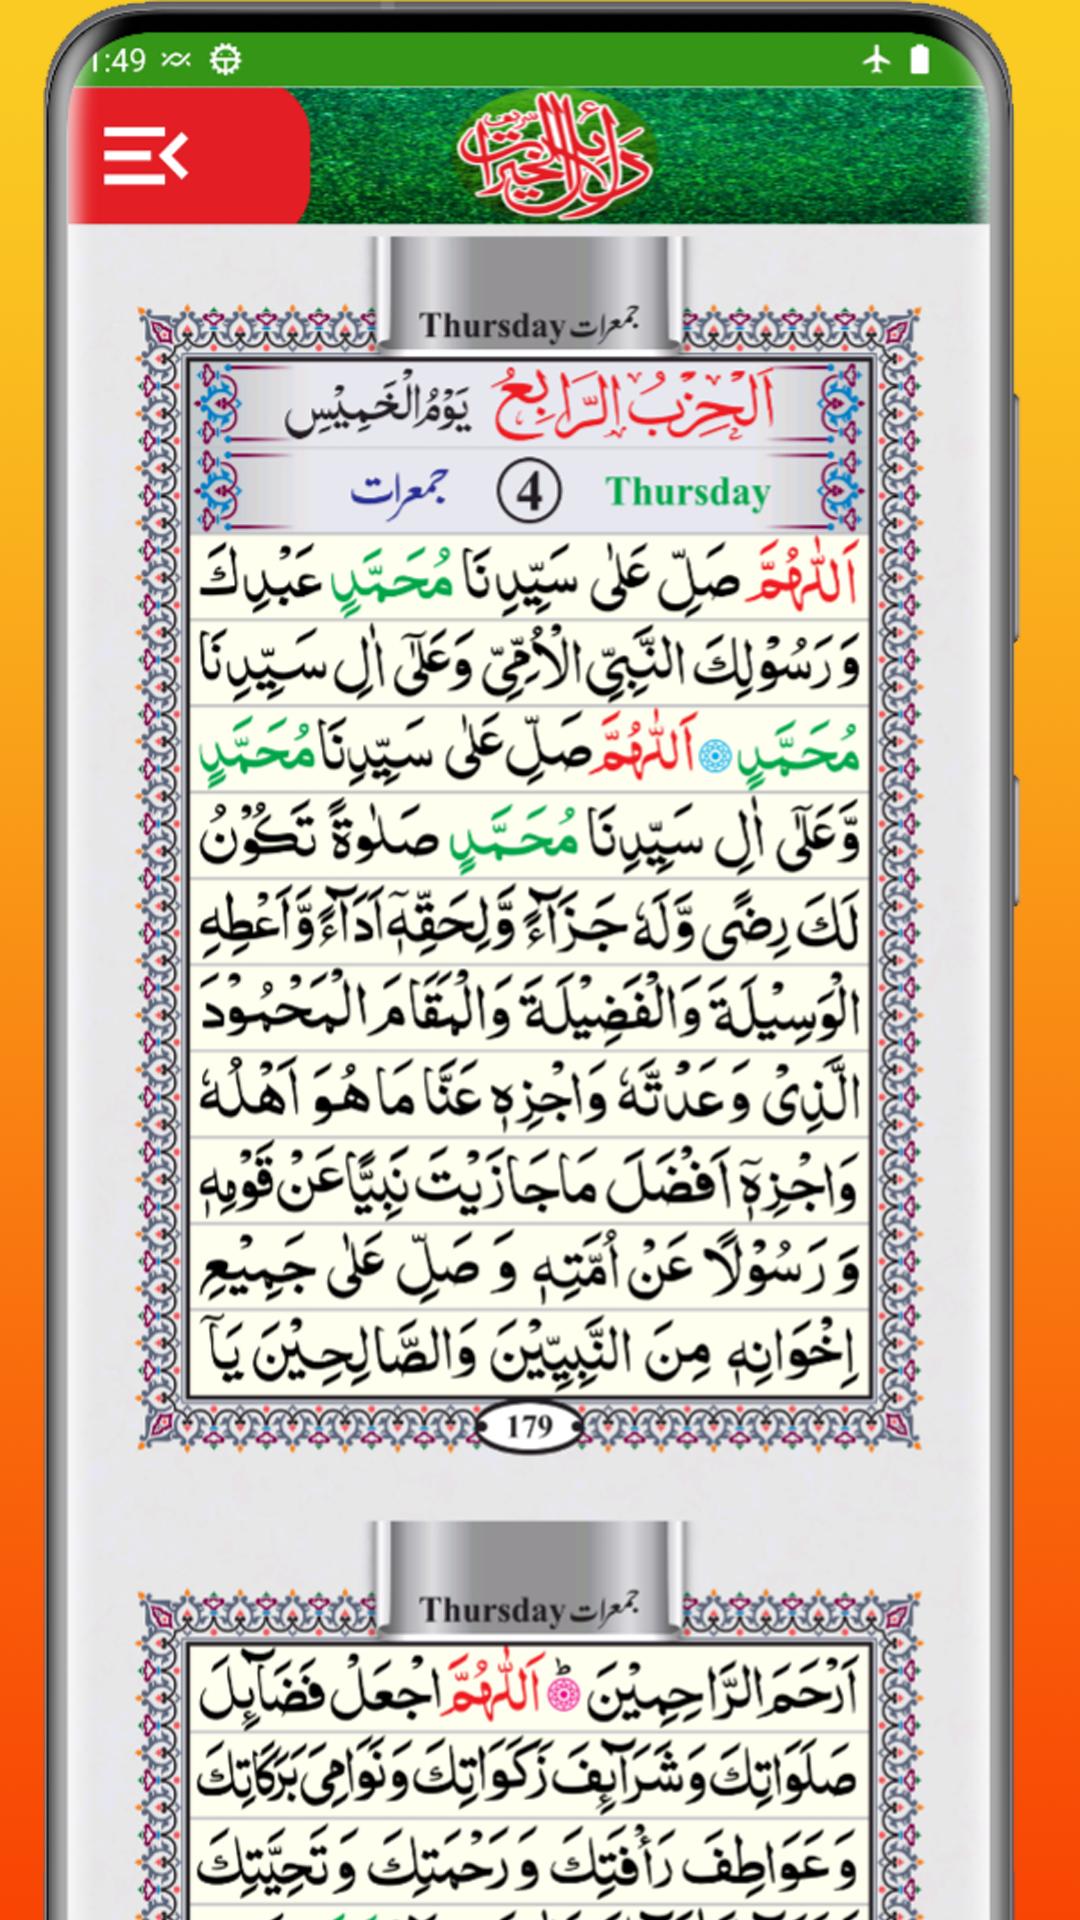 1:49
دلائل الخیرات شریف
Thursday جمعرات
اَلْحِزْبُ الرَّابِعُ يَوْمُ الْخَمِيْسِ
Thursday 4 جمعرات
اَللّٰهُمَّ صَلِّ عَلٰى سَيِّدِنَا مُحَمَّدٍ عَبْدِكَ
وَ رَسُوْلِكَ النَّبِيِّ الْاُمِّيِّ وَعَلٰٓى اٰلِ سَيِّدِنَا
مُحَمَّدٍ اَللّٰهُمَّ صَلِّ عَلٰى سَيِّدِنَا مُحَمَّدٍ
وَّعَلٰٓى اٰلِ سَيِّدِنَا مُحَمَّدٍ صَلٰوةً تَكُوْنُ
لَكَ رِضًى وَّلَهٗ جَزَآءً وَّلِحَقِّهٖٓ اَدَآءً وَّاَعْطِهِ
الْوَسِيْلَةَ وَالْفَضِيْلَةَ وَالْمَقَامَ الْمَحْمُوْدَ
الَّذِىْ وَعَدْتَّهٗ وَاجْزِهٖ عَنَّا مَا هُوَ اَهْلُهٗ
وَاجْزِهٖٓ اَفْضَلَ مَا جَازَيْتَ نَبِيًّا عَنْ قَوْمِهٖ
وَ رَسُوْلًا عَنْ اُمَّتِهٖ وَ صَلِّ عَلٰى جَمِيْعِ
اِخْوَانِهٖ مِنَ النَّبِيِّيْنَ وَالصَّالِحِيْنَ يَآ
179
Thursday جمعرات
اَرْحَمَ الرَّاحِمِيْنَ ؕ اَللّٰهُمَّ اجْعَلْ فَضَآئِلَ
صَلَوَاتِكَ وَشَرَآئِفَ زَكَوَاتِكَ وَنَوَامِىَ بَرَكَاتِكَ
وَعَوَاطِفَ رَأْفَتِكَ وَ رَحْمَتِكَ وَ تَحِيَّتِكَ